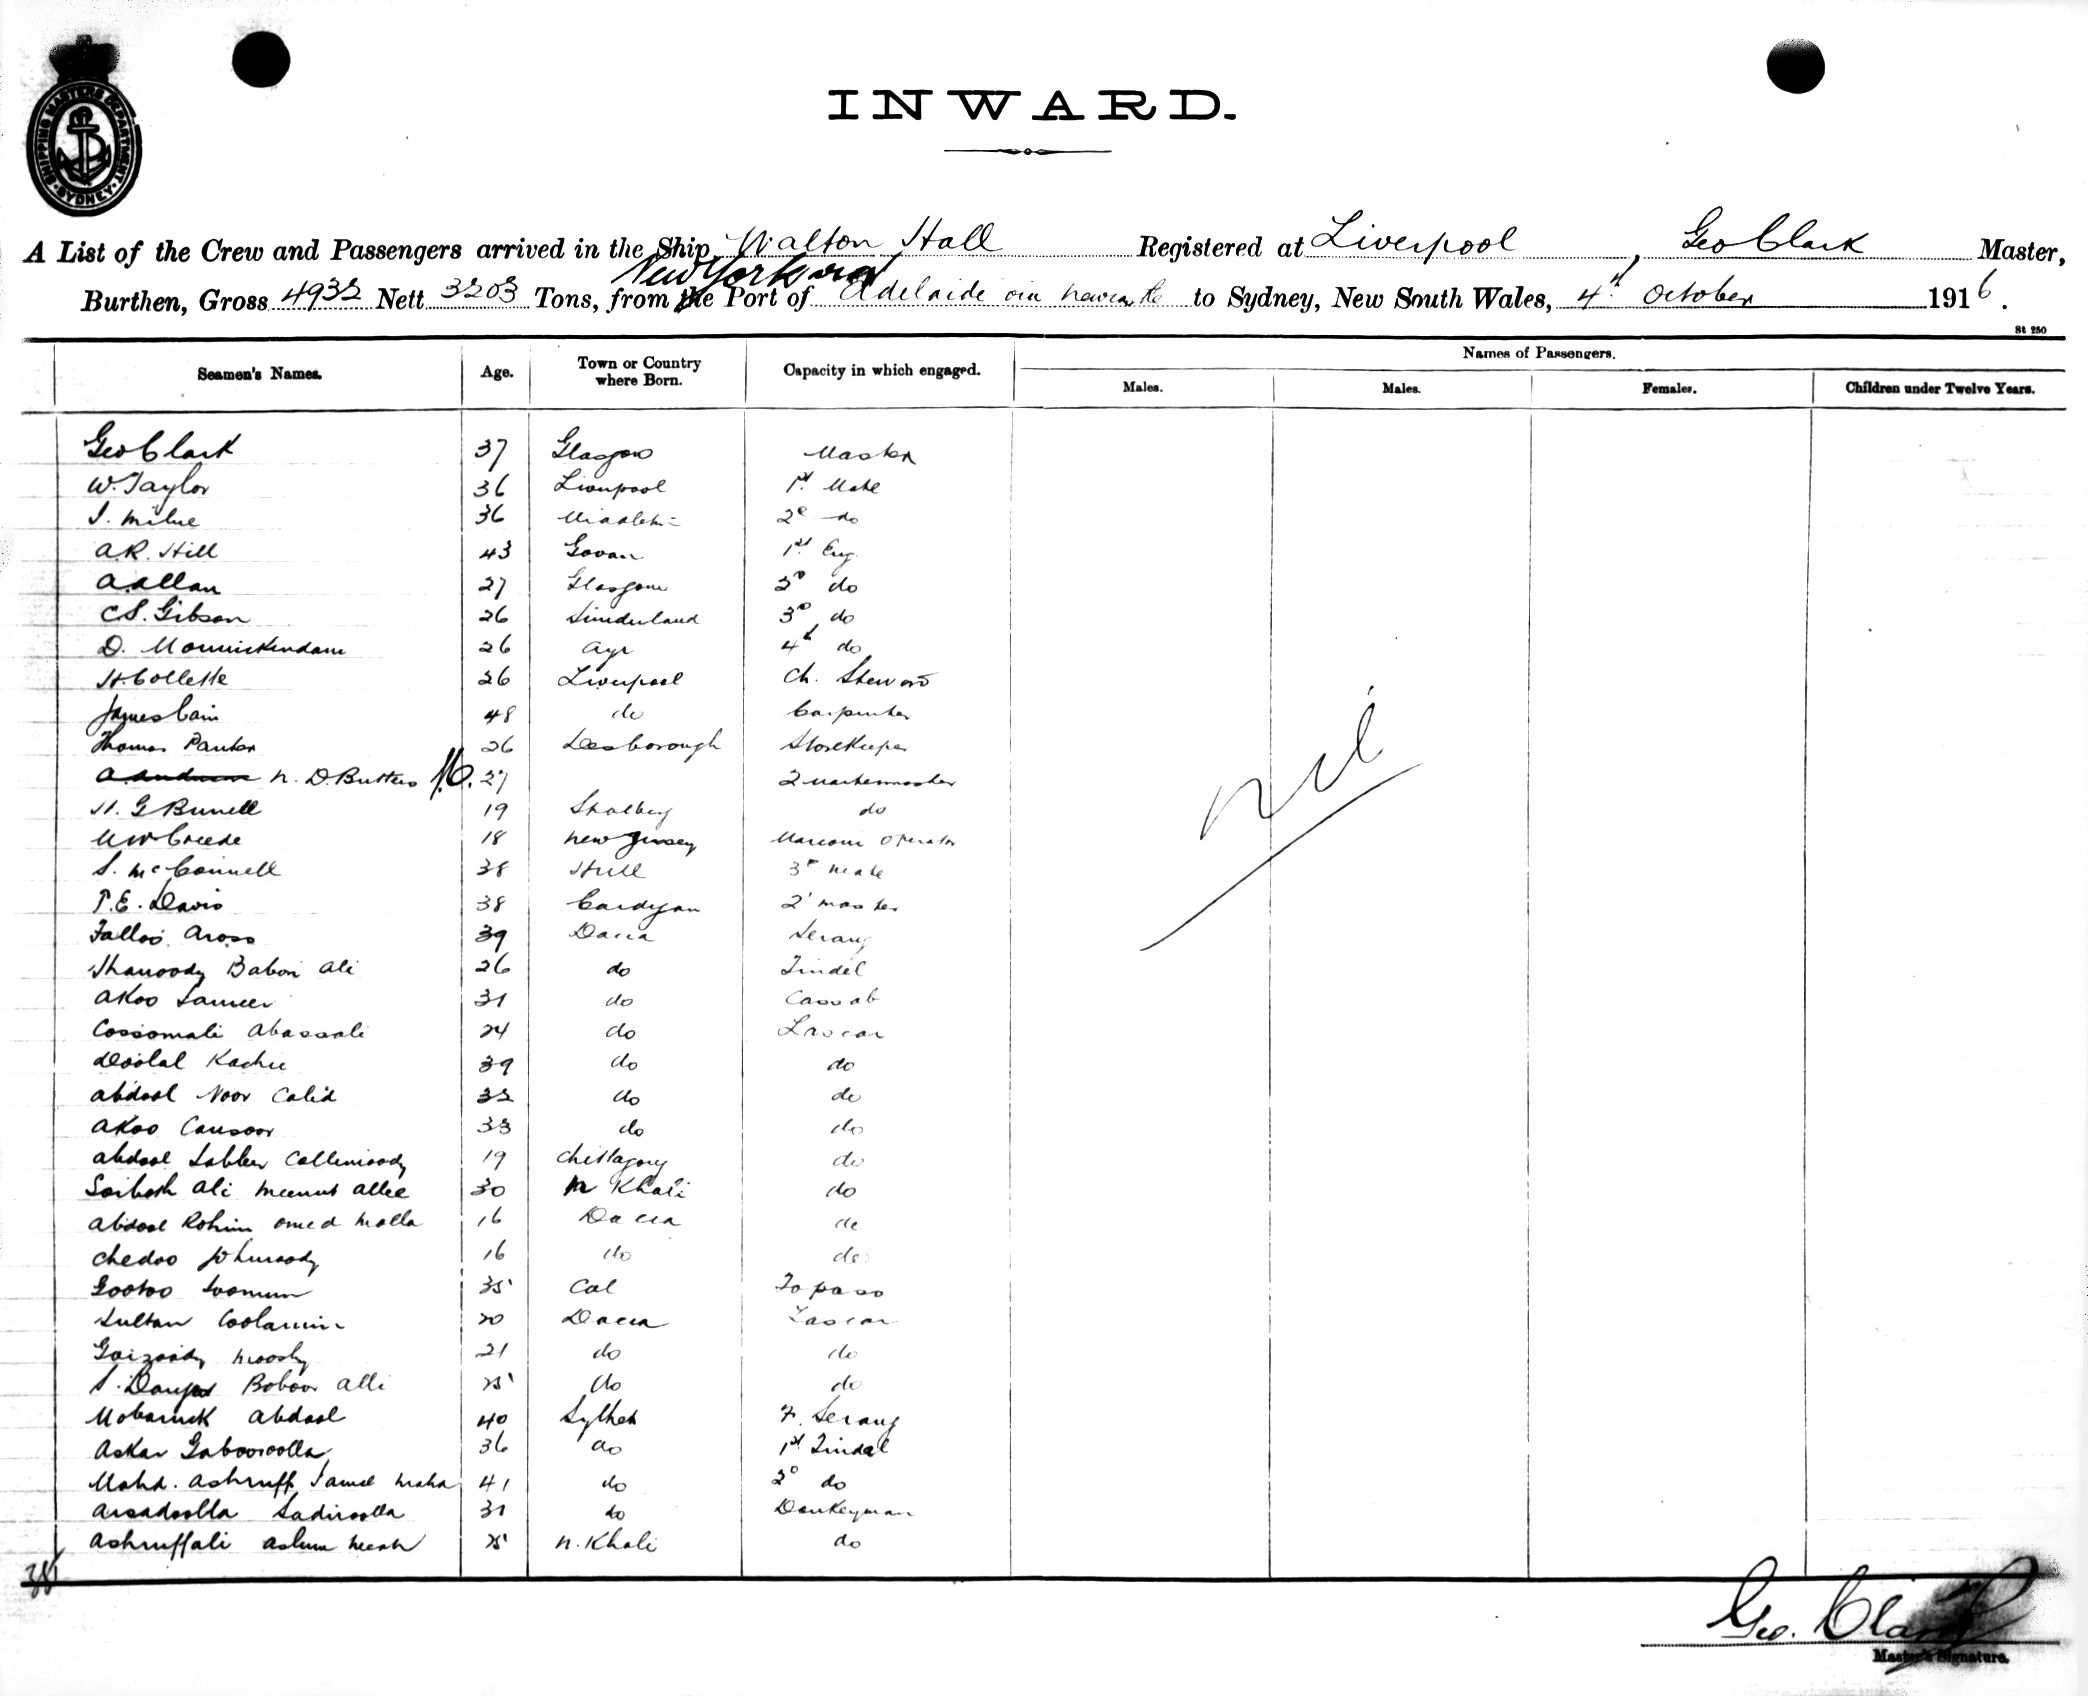 SHIPPING MASTERS DEPARTMENT SYDNEY
INWARD.
A List of the Crew and Passengers arrived in the Ship Walton Hall Registered at Liverpool, Geo Clark Master,
New York and
Burthen, Gross 4932 Nett 3203 Tons, from the Port of Adelaide via Newcastle to Sydney, New South Wales, 4th October 1916.
St 250
Seamen's Names. Age. Town or Country where Born. Capacity in which engaged. Names of Passengers.
Males. Males. Females. Children under Twelve Years.
Geo Clark 37 Glasgow Master
W. Taylor 36 Liverpool 1st Mate
J. Milne 36 2d do
A.R. Hill 43 Govan 1st Eng.
A Allan 27 Glasgow 2d do
C.S. Gibson 26 Sunderland 3d do
D. Monnickendam 26 Ayr 4th do
H Collette 26 Liverpool Ch. Steward
James Cain 48 do Carpenter
Thomas 26 Desborough Storekeeper
N. D. Butters 27 Quartermaster
H. G Bunell 19 do
18 New Jersey Marconi Operator
S. McConnell 38 Hull 3d Mate
P.E. Davis 38 Cardigan 2' master
39 Dacca Serang
Babor Ali 26 do Tindel
Akoo Sameer 31 do Cassab
Cossomali Abassali 24 do Lascar
Doolal 39 do do
Abdool Noor Calid 32 do do
Akoo Cansoor 33 do do
Abdool 19 Chittagong do
Ali Allee 30 N Khali do
Abdool Rohim Omed Molla 16 Dacca do
Chedoo 16 do do
35 Cal Topass
Sultan 20 Dacca Lascar
21 do do
S. Boboor Alli 25 do do
Mobaruck Abdool 40 Sylhet F. Serang
Askar 36 do 1st Tindal
Mohd. Ashruff 41 do 2d do
Arsadoolla Sadiroolla 31 do Donkeyman
Ashruffali Aslum Meeah 25 N. Khali do
Nil
Geo. Clark
Master's Signature.